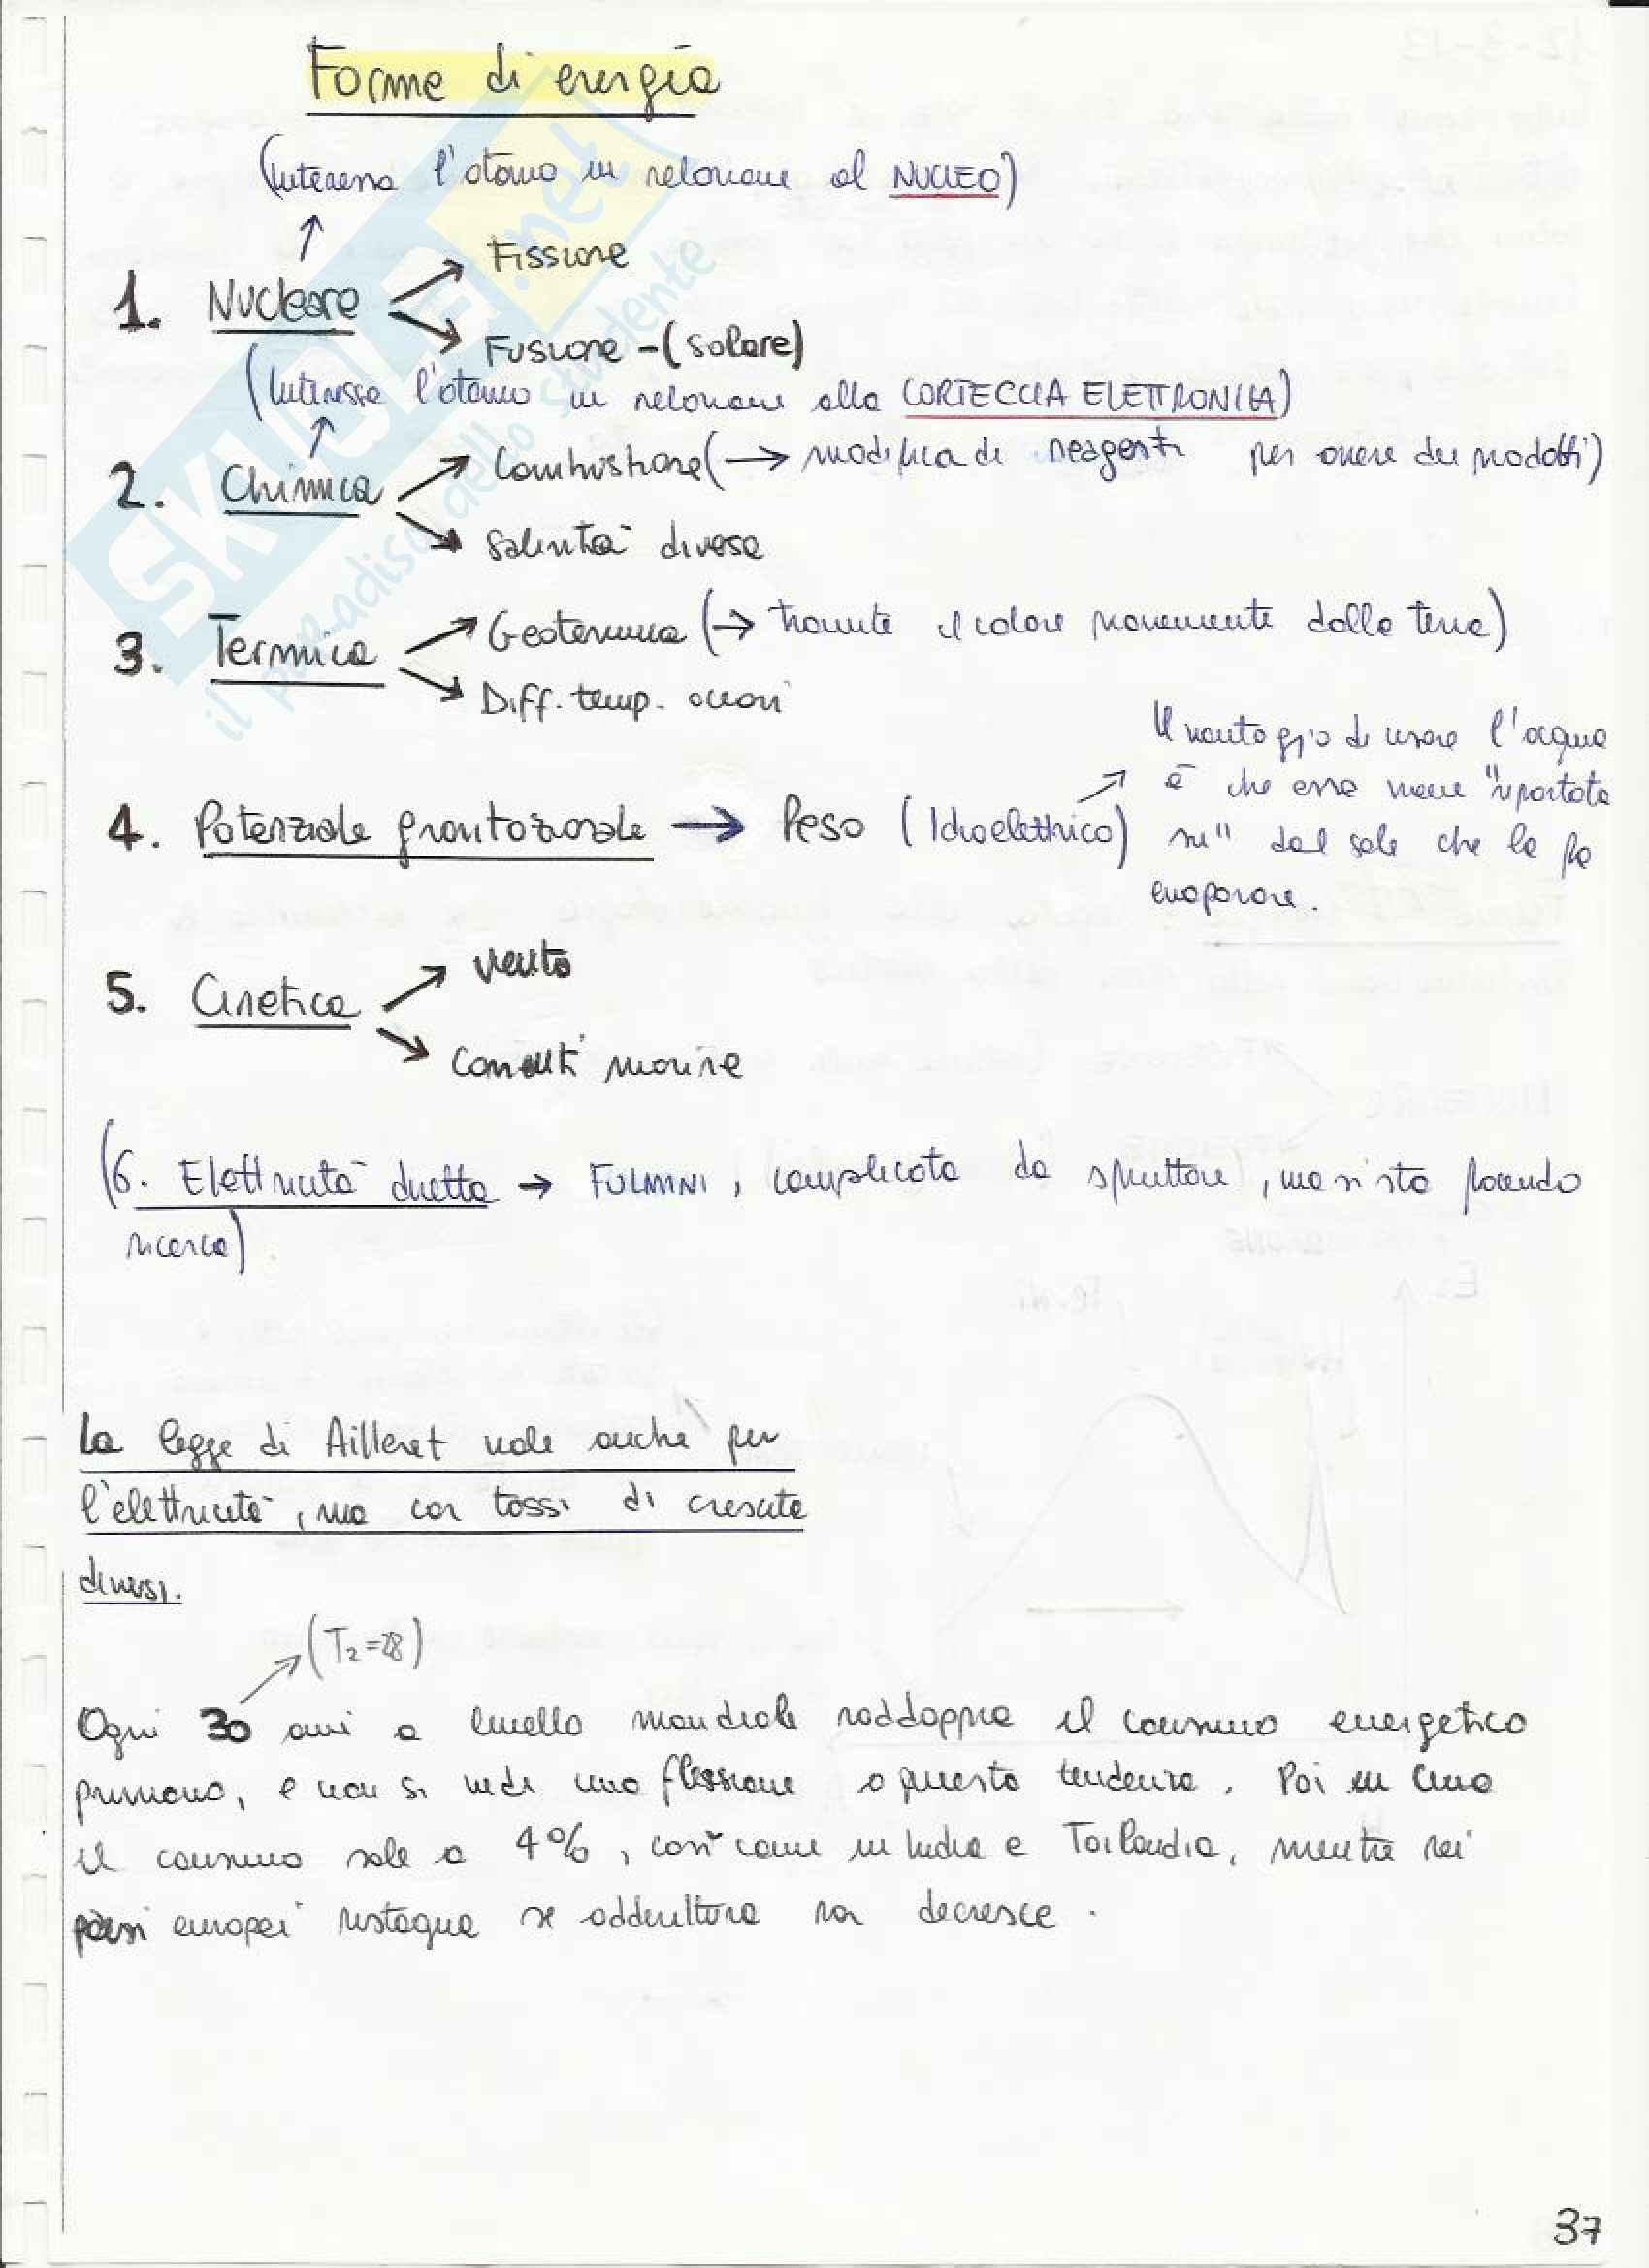 Forme di energia
(Interessa l'atomo in relazione al NUCLEO)
1. Nucleare
Fissione
Fusione - (Solare)
(Interessa l'atomo in relazione alla CORTECCIA ELETTRONICA)
2. Chimica
Combustione (→ modifica di reagenti per avere dei prodotti)
Salinità diversa
3. Termica
Geotermica (→ tramite il calore proveniente dalla terra)
Diff. temp. oceani
4. Potenziale gravitazionale → Peso (Idroelettrico)
Il vantaggio di usare l'acqua
è che essa viene "riportata
su" dal sole che la fa
evaporare.
5. Cinetica
Vento
Correnti marine
(6. Elettricità diretta → FULMINI, complicata da sfruttare, ma si sta facendo
ricerca)
La legge di Ailleret vale anche per
l'elettricità, ma con tassi di crescita
diversi.
(T₂=28)
Ogni 30 anni a livello mondiale raddoppia il consumo energetico
primario, e non si vede una flessione a questa tendenza. Poi in Cina
il consumo sale a 4%, così come in India e Tailandia, mentre nei
paesi europei ristagna se addirittura non decresce.
37
SKUOLA.net
il paradiso dello studente